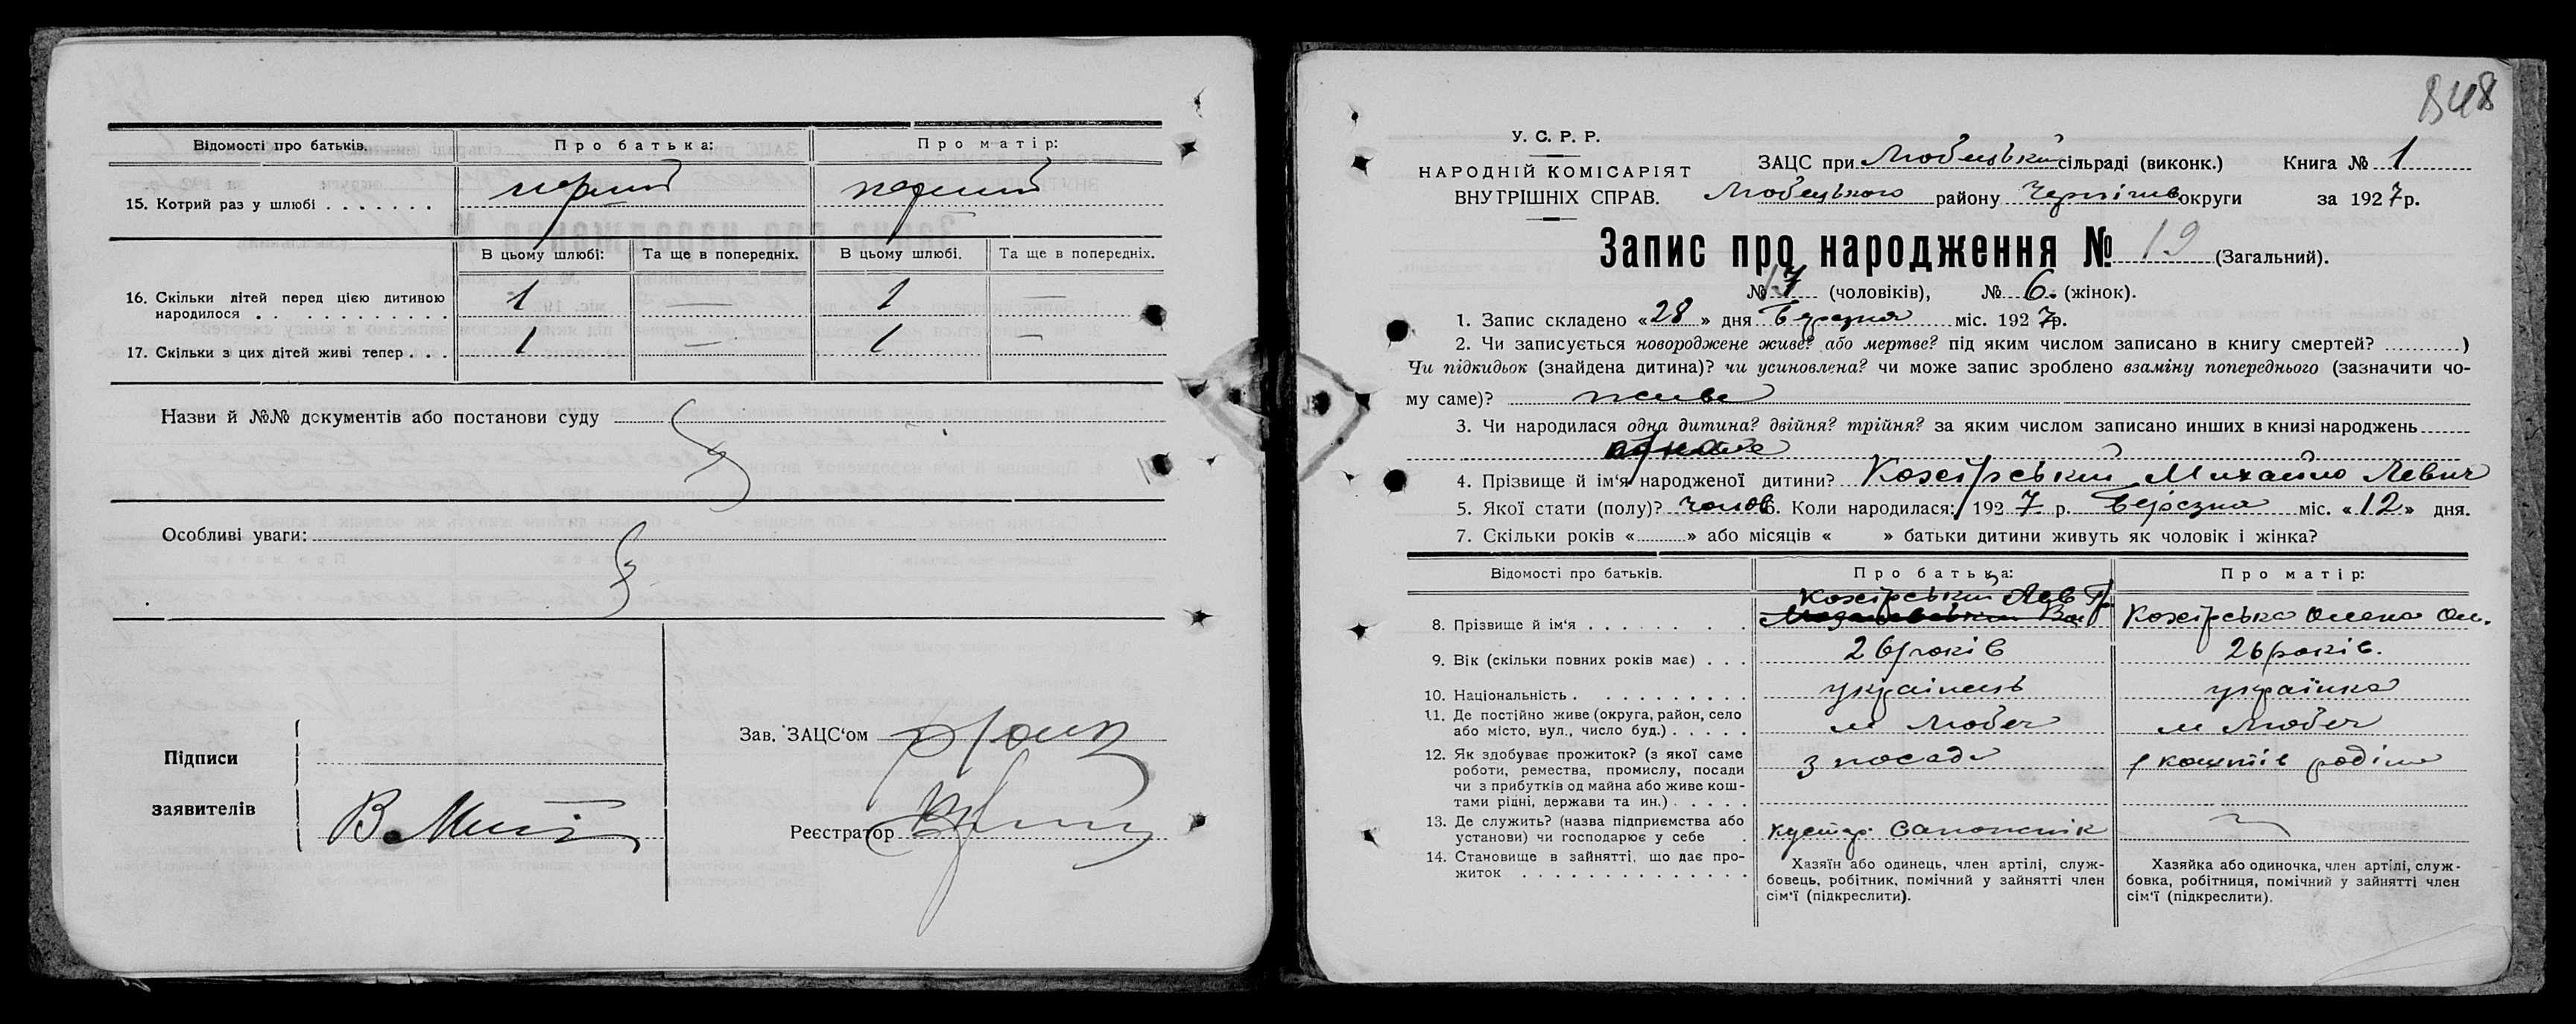 Відомості про батьків.
Про батька:
Про матір:
15. Котрий раз у шлюбі
перший
перший
В цьому шлюбі:
Та ще в попередніх.
В цьому шлюбі.
Та ще в попередніх.
16. Скільки дітей перед цією дитиною
народилося
1
—
1
—
17. Скільки з цих дітей живі тепер
1
—
1
—
Назви й №№ документів або постанови суду
Особливі уваги:
Підписи
заявителів
Зав. ЗАЦС'ом
Реєстратор
848
У. С. Р. Р.
НАРОДНІЙ КОМІСАРІЯТ
ВНУТРІШНІХ СПРАВ.
ЗАЦС при Любецькій сільраді (виконк.) Книга № 1
Любецького району Чернігів округи за 1927 р.
Запис про народження № 19 (Загальний).
№ (чоловіків), № 6. (жінок).
1. Запис складено «28» дня березня міс. 1927 р.
2. Чи записується новороджене живе? або мертве? під яким числом записано в книгу смертей? )
Чи підкидьок (знайдена дитина)? чи усиновлена? чи може запис зроблено взаміну попереднього (зазначити чо-
му саме)? живе
3. Чи народилася одна дитина? двійня? трійня? за яким числом записано инших в книзі народжень
одна
4. Прізвище й ім'я народженої дитини? Кохірський Михайло Левич
5. Якої стати (полу)? чолов 6. Коли народилася: 1927 р. березня міс. «12» дня.
7. Скільки років « » або місяців « » батьки дитини живуть як чоловік і жінка?
Відомості про батьків.
Про батька:
Про матір:
8. Прізвище й ім'я
Кохірський Лев Г.
Кохірська Олена Ом.
9. Вік (скільки повних років має)
26 років
26 років.
10. Національність
українець
українка
11. Де постійно живе (округа, район, село
або місто, вул., число буд.)
м Любеч
м Любеч
12. Як здобуває прожиток? (з якої саме
роботи, ремества, промислу, посади
чи з прибутків од майна або живе кош-
тами рідні, держави та ин.)
з посади
коштів родіни
13. Де служить? (назва підприємства або
установи) чи господарює у себе
кустар. сапожнік
14. Становище в зайнятті, що дає про-
житок
Хазяїн або одинець, член артілі, служ-
бовець, робітник, помічний у зайнятті член
сім'ї (підкреслити).
Хазяйка або одиночка, член артілі, служ-
бовка, робітниця, помічний у зайнятті член
сім'ї (підкреслити).